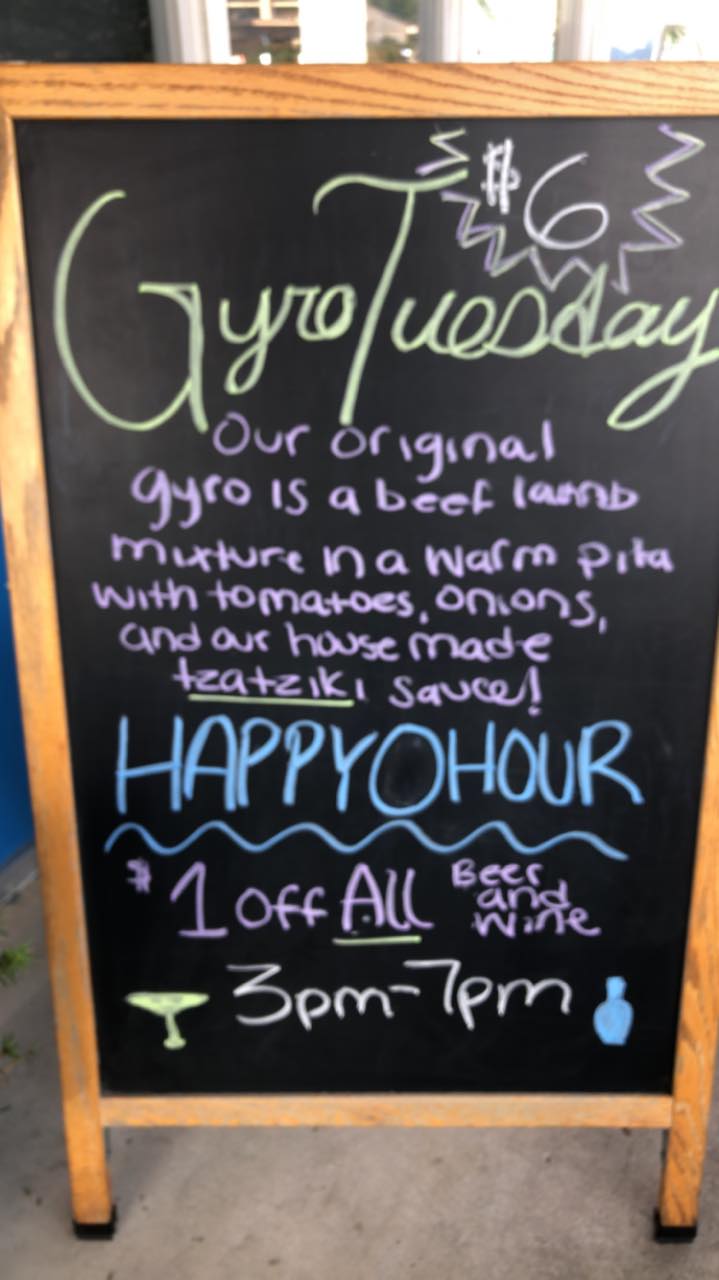 $6
Gyro Tuesday
Our original
gyro is a beef lamb
mixture in a warm pita
with tomatoes, onions,
and our house made
tzatziki sauce!
HAPPY HOUR
$1 off All Beer and Wine
3pm-7pm